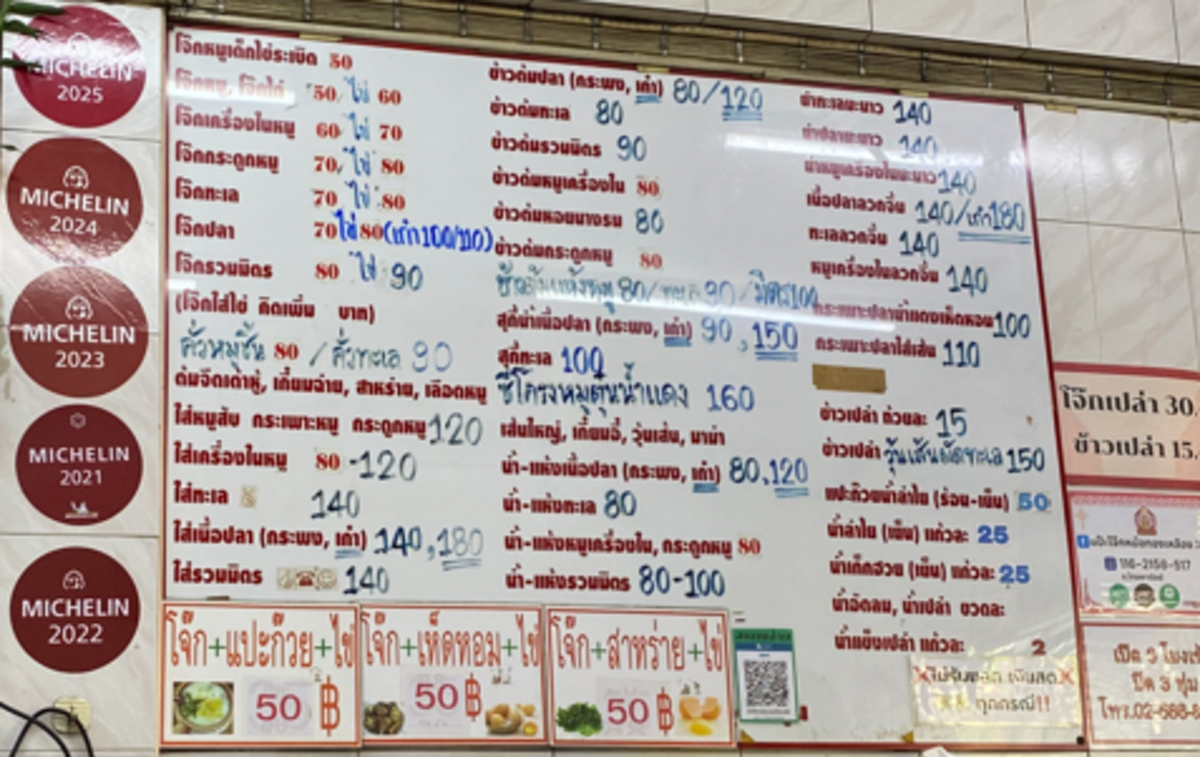 MICHELIN
2025
MICHELIN
2024
MICHELIN
2023
MICHELIN
2021
MICHELIN
2022
โจ๊กหมูเด็กไข่ระเบิด 50
โจ๊กหมู, โจ๊กไก่ 50/ไข่ 60
โจ๊กเครื่องในหมู 60 ไข่ 70
โจ๊กกระดูกหมู 70/ไข่ 80
โจ๊กทะเล 70 ไข่ 80
โจ๊กปลา 70ไข่80(เก๋า100/110)
โจ๊กรวมมิตร 80 ไข่ 90
(โจ๊กใส่ไข่ คิดเพิ่ม บาท)
คั่วหมูชิ้น 80 / คั่วทะเล 90
ต้มจืดเต้าหู้, เกี้ยมฉ่าย, สาหร่าย, เลือดหมู
ใส่หมูสับ กระเพาะหมู กระดูกหมู 120
ใส่เครื่องในหมู 80-120
ใส่ทะเล 140
ใส่เนื้อปลา (กระพง, เก๋า) 140,180
ใส่รวมมิตร 140
ข้าวต้มปลา (กระพง, เก๋า) 80/120
ข้าวต้มทะเล 80
ข้าวต้มรวมมิตร 90
ข้าวต้มหมูเครื่องใน 80
ข้าวต้มหอยนางรม 80
ข้าวต้มกระดูกหมู 80
ข้าวต้มแห้งหมู 80/ทะเล 90/มิตร100
สุกี้น้ำเนื้อปลา (กระพง, เก๋า) 90,150
สุกี้ทะเล 100
ซี่โครงหมูตุ๋นน้ำแดง 160
เส้นใหญ่, เกี้ยมอี๋, วุ้นเส้น, มาม่า
น้ำ-แห้งเนื้อปลา (กระพง, เก๋า) 80,120
น้ำ-แห้งทะเล 80
น้ำ-แห้งหมูเครื่องใน, กระดูกหมู 80
น้ำ-แห้งรวมมิตร 80-100
ยำทะเลมะนาว 140
ยำปลามะนาว 140
ยำหมูเครื่องในมะนาว 140
เนื้อปลาลวกจิ้ม 140/เก๋า180
ทะเลลวกจิ้ม 140
หมูเครื่องในลวกจิ้ม 140
กระเพาะปลาน้ำแดงเห็ดหอม 100
กระเพาะปลาใส่เส้น 110
ข้าวเปล่า ถ้วยละ 15
ข้าวเปล่า วุ้นเส้นผัดทะเล 150
แปะก๊วยน้ำลำไย (ร้อน-เย็น) 50
น้ำลำไย (เย็น) แก้วละ 25
น้ำเก็กฮวย (เย็น) แก้วละ 25
น้ำอัดลม, น้ำเปล่า ขวดละ
น้ำแข็งเปล่า แก้วละ 2
โจ๊ก+แปะก๊วย+ไข่
50 ฿
โจ๊ก+เห็ดหอม+ไข่
50 ฿
โจ๊ก+สาหร่าย+ไข่
50 ฿
ทุกกรณี!!
โจ๊กเปล่า 30
ข้าวเปล่า 15
116-2158-517
เปิด 3 โมง
ปิด 3 ทุ่ม